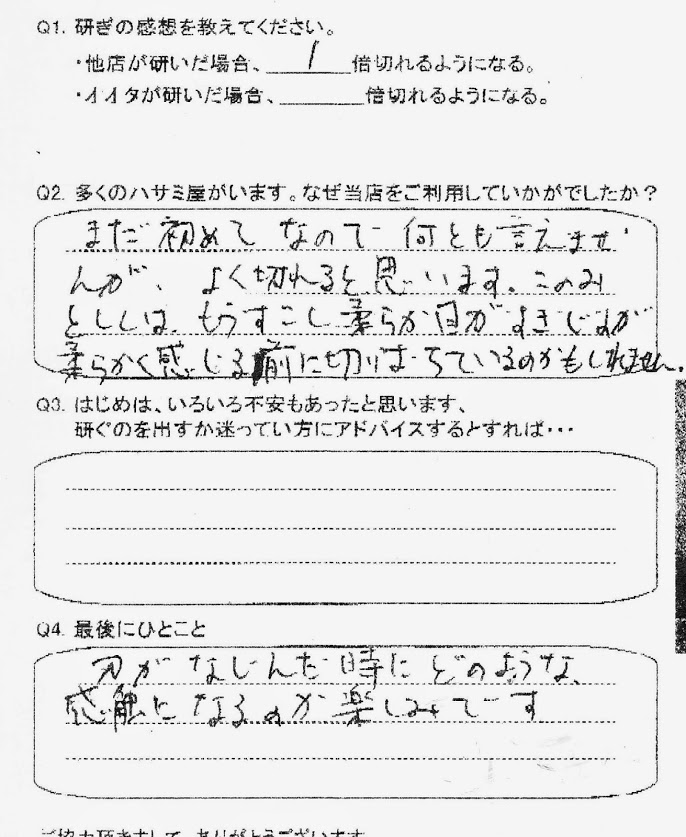 Q1. 研ぎの感想を教えてください。
・他店が研いだ場合、 1 倍切れるようになる。
・イイタが研いだ場合、 倍切れるようになる。
Q2. 多くのハサミ屋がいます。なぜ当店をご利用していかがでしたか?
まだ初めてなので何とも言えませ
んが、よく切れると思います。このみ
としては、もうすこし柔らか目がすきですが
柔らかく感じる前に切りおちているのかもしれません。
Q3. はじめは、いろいろ不安もあったと思います、
研ぐのを出すか迷ってい方にアドバイスするとすれば・・・
Q4. 最後にひとこと
刃がなじんだ時にどのような
感触になるのか楽しみです
ご協力頂きまして、ありがとうございます